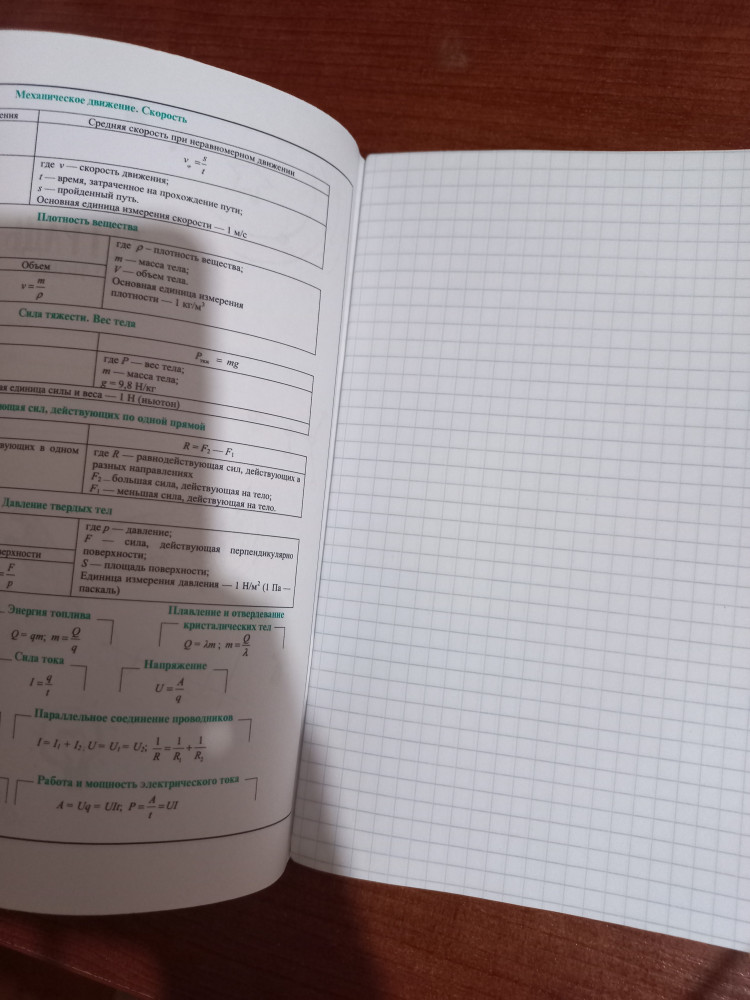 Механическое движение. Скорость
Средняя скорость при неравномерном движении
v = s/t
где v — скорость движения;
t — время, затраченное на прохождение пути;
s — пройденный путь.
Основная единица измерения скорости — 1 м/с
Плотность вещества
Объем
v = m/ρ
где ρ – плотность вещества;
m — масса тела;
V — объем тела.
Основная единица измерения
плотности — 1 кг/м³
Сила тяжести. Вес тела
P = mg
где P — вес тела;
m — масса тела;
g = 9,8 Н/кг
единица силы и веса — 1 Н (ньютон)
сил, действующих по одной прямой
R = F₂ — F₁
в одном
где R — равнодействующая сил, действующих в
разных направлениях
F₂ – большая сила, действующая на тело;
F₁ — меньшая сила, действующая на тело.
Давление твердых тел
= F/p
где p — давление;
F — сила, действующая перпендикулярно
поверхности;
S — площадь поверхности;
Единица измерения давления — 1 Н/м² (1 Па —
паскаль)
Энергия топлива
Q = qm; m = Q/q
Плавление и отвердевание
кристалических тел
Q = λm ; m = Q/λ
Сила тока
I = q/t
Напряжение
U = A/q
Параллельное соединение проводников
I = I₁ + I₂ U = U₁ = U₂; 1/R = 1/R₁ + 1/R₂
Работа и мощность электрического тока
A = Uq = UIt; P = A/t = UI